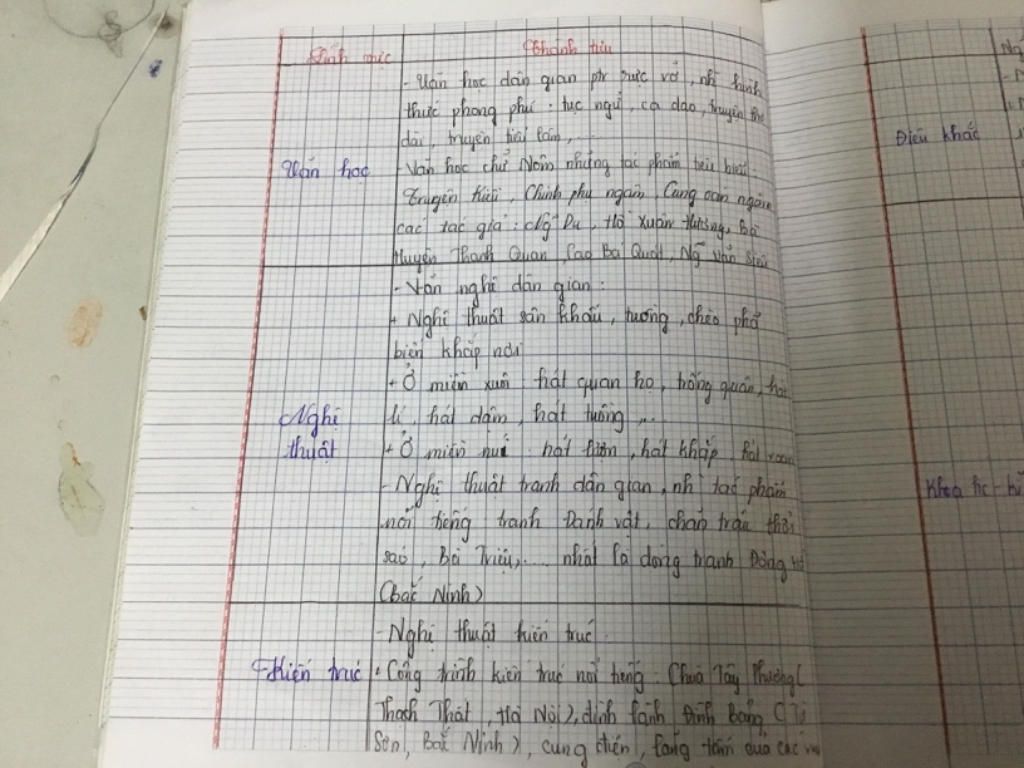 Lĩnh vực
Thành tựu
- Văn học dân gian ptr rực rỡ, nh` hình
thức phong phú: tục ngữ, ca dao, truyện thơ
dài, truyện tiếu lâm,...
Văn học
- Văn học chữ Nôm những tác phẩm tiêu biểu:
Truyện Kiều, Chinh phụ ngâm, Cung oán ngâm
các tác giả: Ng~ Du, Hồ Xuân Hương, Bà
Huyện Thanh Quan, Cao Bá Quát, Ng~ Văn Siêu
- Văn nghệ dân gian:
+ Nghệ thuật sân khấu, tuồng, chèo phổ
biến khắp nơi
+ Ở miền xuôi hát quan họ, trống quân, hát
lí, hát dặm, hát tuồng,...
Nghệ
thuật
+ Ở miền núi hát lượn, hát khắp, hát xoan
- Nghệ thuật tranh dân gian, nh` tác phẩm
nổi tiếng tranh Đánh vật, chăn trâu thổi
sáo, Bà Triệu,... nhất là dòng tranh Đông Hồ
(Bắc Ninh)
- Nghệ thuật kiến trúc
Kiến trúc
+ Công trình kiến trúc nổi tiếng: Chùa Tây Phương (
Thạch Thất, Hà Nội), đình làng Đình Bảng (Từ
Sơn, Bắc Ninh), cung điện, lăng tẩm của các
Điêu khắc
Khoa hc - kĩ